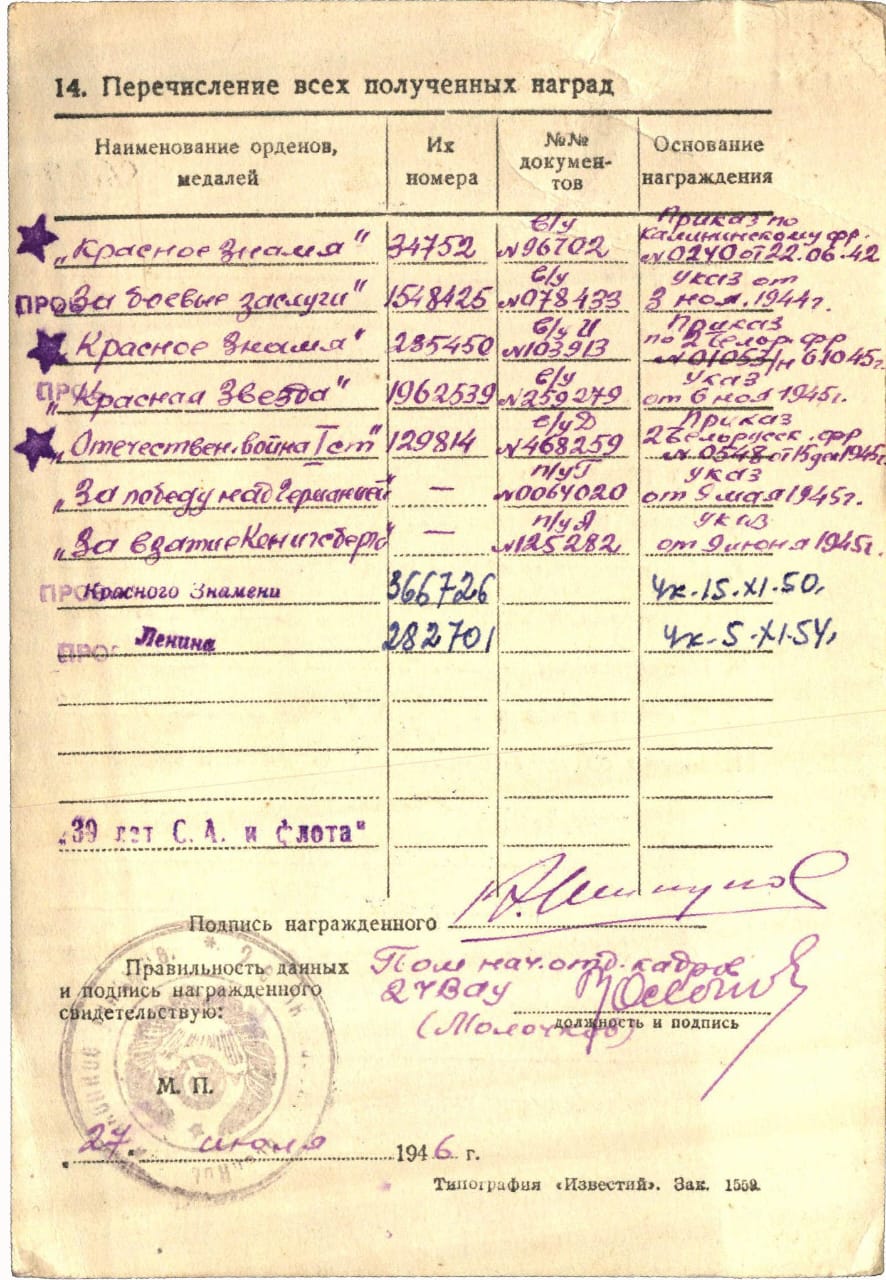 14. Перечисление всех полученных наград
Наименование орденов, медалей
Их номера
№№ документов
Основание награждения
„Красное Знамя" 34752 в/у №96702 Приказ по Калининскому фр. №0240 от 22.06.42
ПРО „За боевые заслуги" 1548425 в/у №078433 Указ от 3 ноя. 1944г.
„Красное Знамя" 285450 №103913 Приказ по 2 Белор. фр №01053/н 6.10.45г.
„Красная Звезда" 1962539 в/у №259279 Указ от 6 ноя 1945г.
„Отечествен. война I ст" 129814 №468259 Приказ 2 Белорусск. фр №0548 от 1945г.
„За победу над Германией" — №0064020 Указ от 9 мая 1945г.
„За взятие Кенигсберга" — №125282 Указ от 9 июня 1945г.
ПРО Красного Знамени 366726 Ук. 15.XI.50.
ПРО Ленина 282701 Ук. 5.XI.54.
„39 лет С. А. и флота"
Подпись награжденного
Правильность данных
и подпись награжденного
свидетельствую:
Пом нач. отд. кадров
2 ЧВАУ
должность и подпись
М. П.
27 июля 1946 г.
Типография «Известий». Зак. 1559.